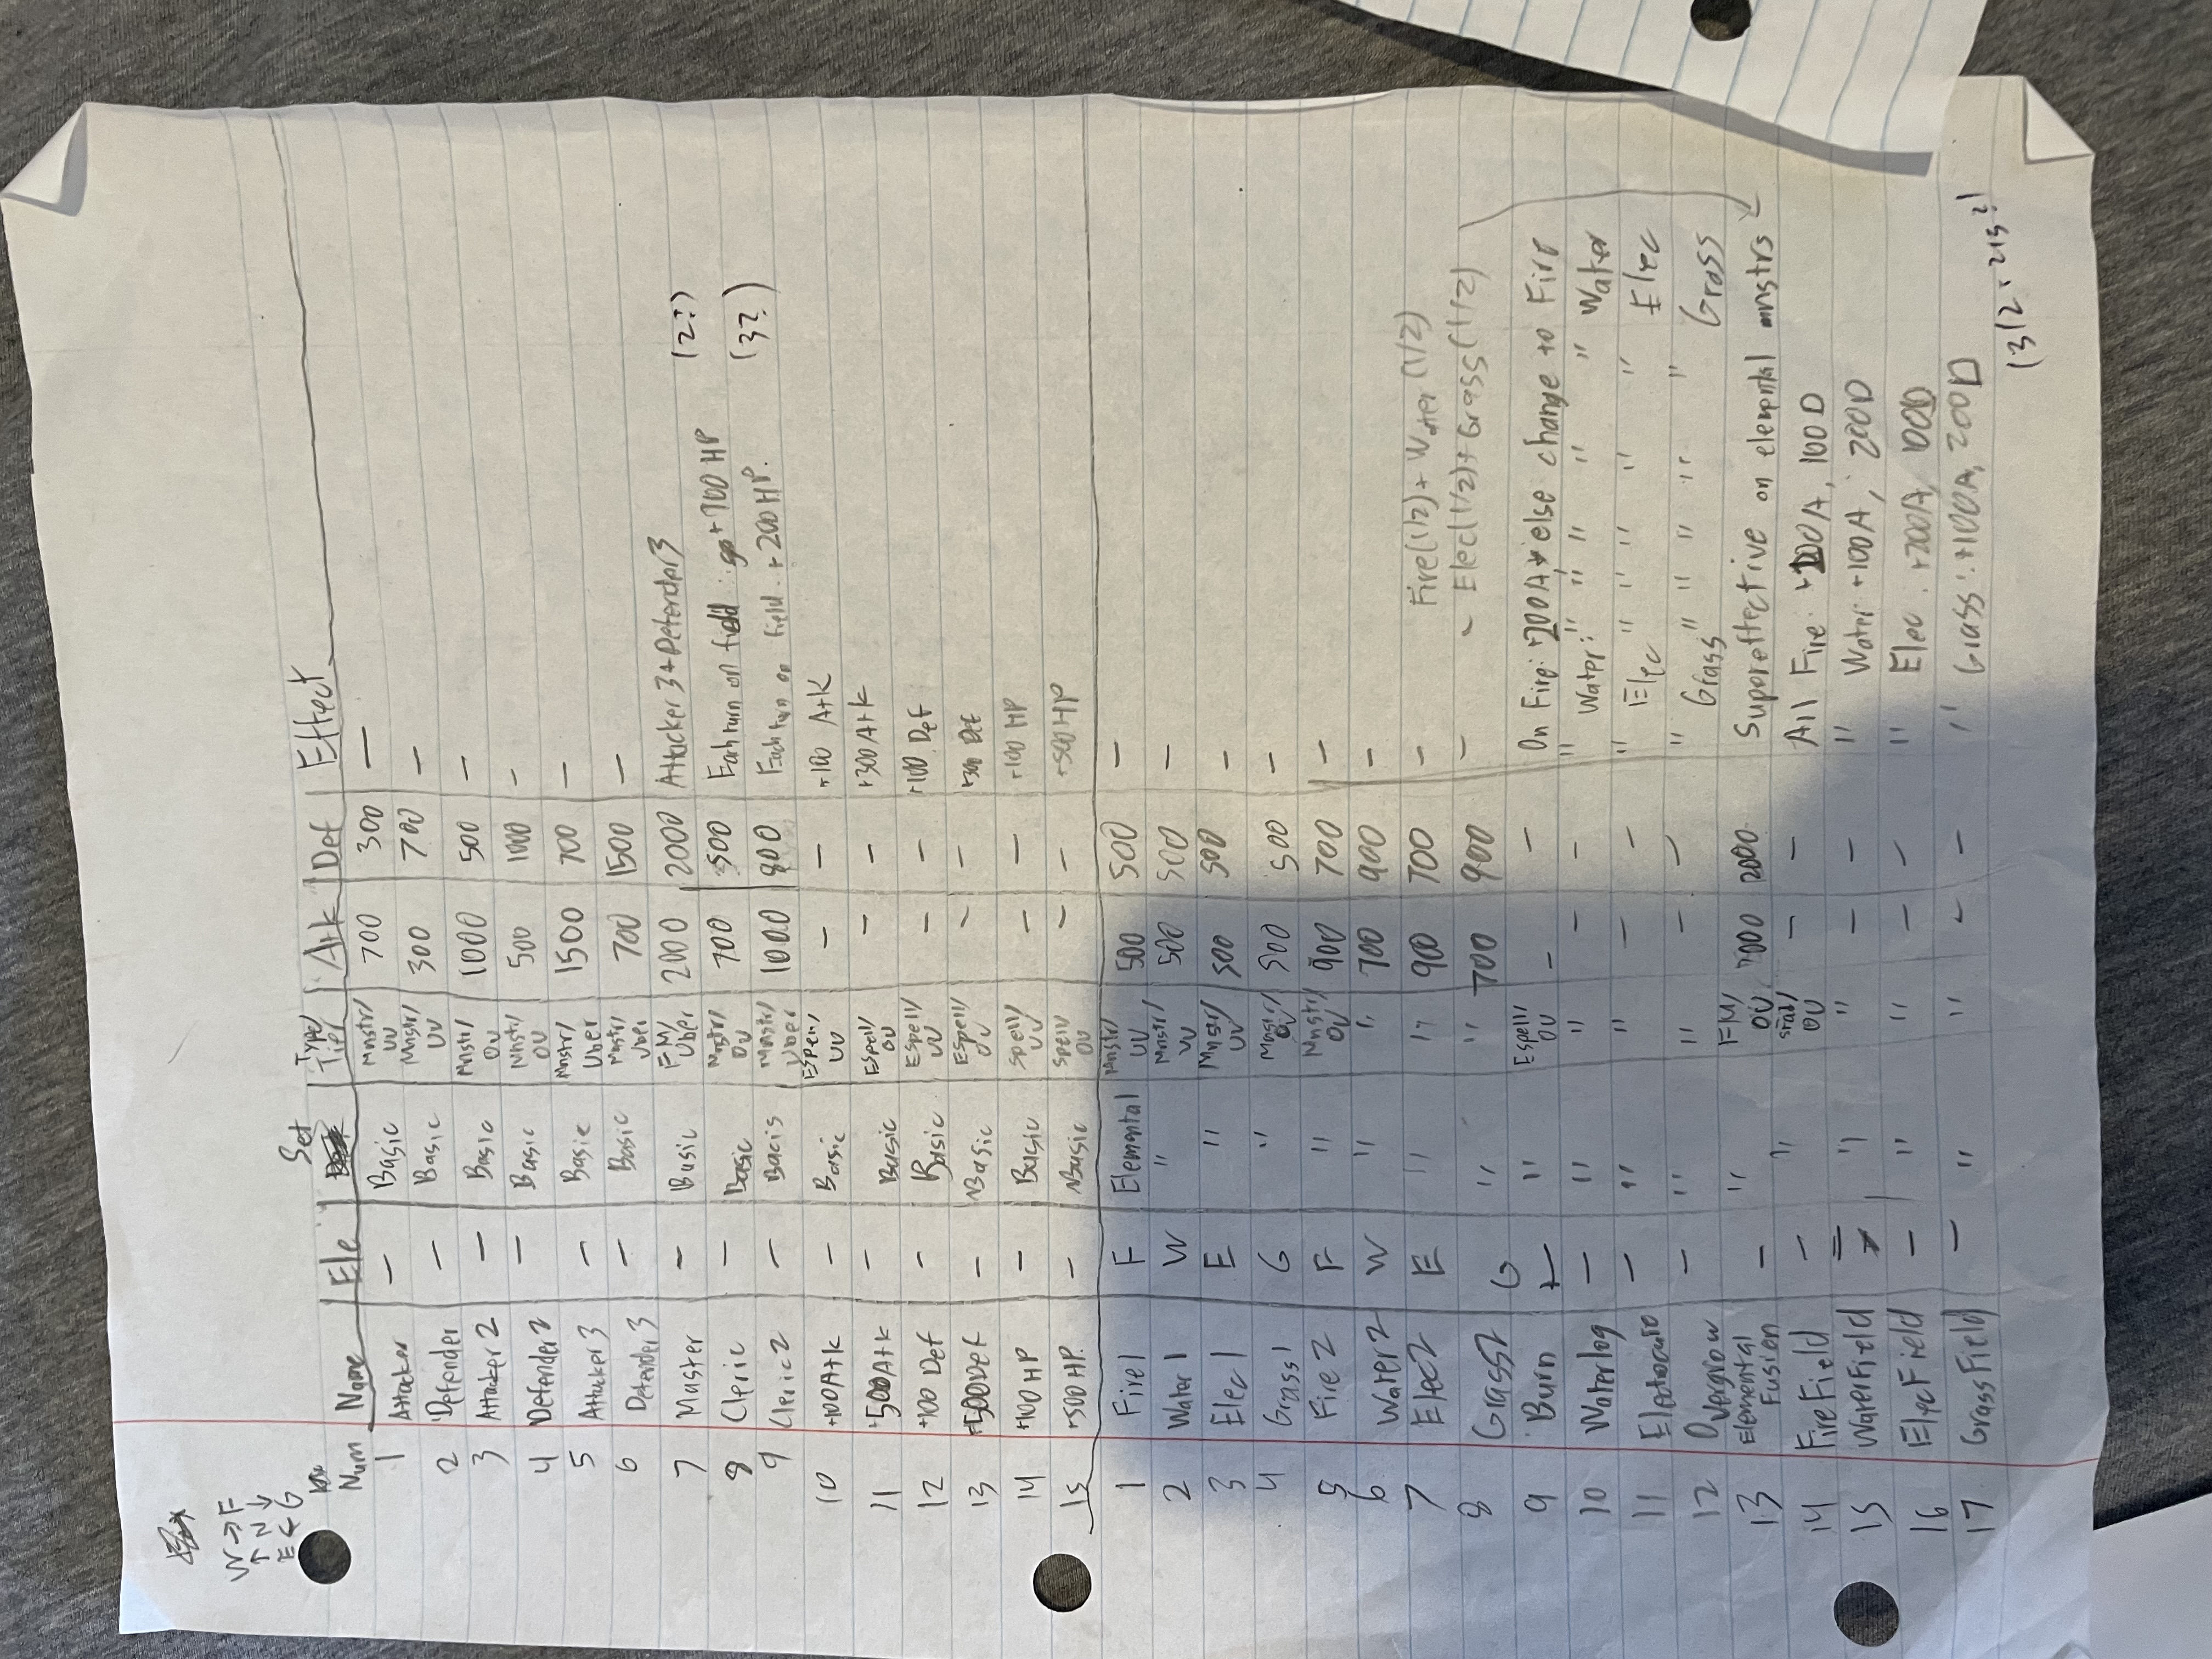 W → F
↑ N ↓
E ← G
Num Name Ele Set Type/Tier Atk Def Effect
1 Attacker — Basic Mnstr/UU 700 300 —
2 Defender — Basic Mnstr/UU 300 700 —
3 Attacker 2 — Basic Mnstr/OU 1000 500 —
4 Defender 2 — Basic Mnstr/OU 500 1000 —
5 Attacker 3 — Basic Mnstr/Uber 1500 700 —
6 Defender 3 — Basic Mnstr/Uber 700 1500 —
7 Master — Basic FM/Uber 2000 2000 Attacker 3 + Defender 3
8 Cleric — Basic Mnstr/OU 700 500 Each turn on field: +100 HP (2?)
9 Cleric 2 — Bacis Mnstr/Uber 1000 800 Each turn on field: +200 HP. (3?)
10 +100 Atk — Basic ESpell/UU — — +100 Atk
11 +500 Atk — Basic ESpell/OU — — +300 Atk
12 +100 Def — Basic ESpell/UU — — +100 Def
13 +500 Def — Basic ESpell/OU — — +300 Def
14 +100 HP — Basic Spell/UU — — +100 HP
15 +500 HP. — Basic Spell/OU — — +500 HP
1 Fire 1 F Elemental Mnstr/UU 500 500 —
2 Water 1 W " Mnstr/UU 500 500 —
3 Elec 1 E " Mnstr/UU 500 500 —
4 Grass 1 G " Mnstr/OU 500 500 —
5 Fire 2 F " Mnstr/OU 900 700 —
6 Water 2 W " " 700 900 —
7 Elec 2 E " " 900 700 — Fire(1/2) + Water (1/2)
8 Grass 2 G " " 700 900 — Elec(1/2) + Grass (1/2)
9 Burn — " Espell/OU — — On Fire: +200A, else change to Fire
10 Waterlog — " " — — " Water: " " " " " Water
11 — " " — — " Elec " " " " " Elec
12 Overgrow — " " — — " Grass " " " " " Grass
13 Elemental Fusion — " FM/OU 2000 2000 Supereffective on elemental mnstrs
14 Fire Field — " OU — — All Fire: +200A, 100D
15 Water Field — " " — — " Water: +100A, 200D
16 Elec Field — " " — — " Elec: +200A, 100D
17 Grass Field — " " — — " Grass: +100A, 200D